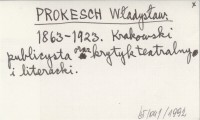 PROKESCH Władysław
1863-1923. Krakowski
publicysta oraz krytyk teatralny
i literacki.